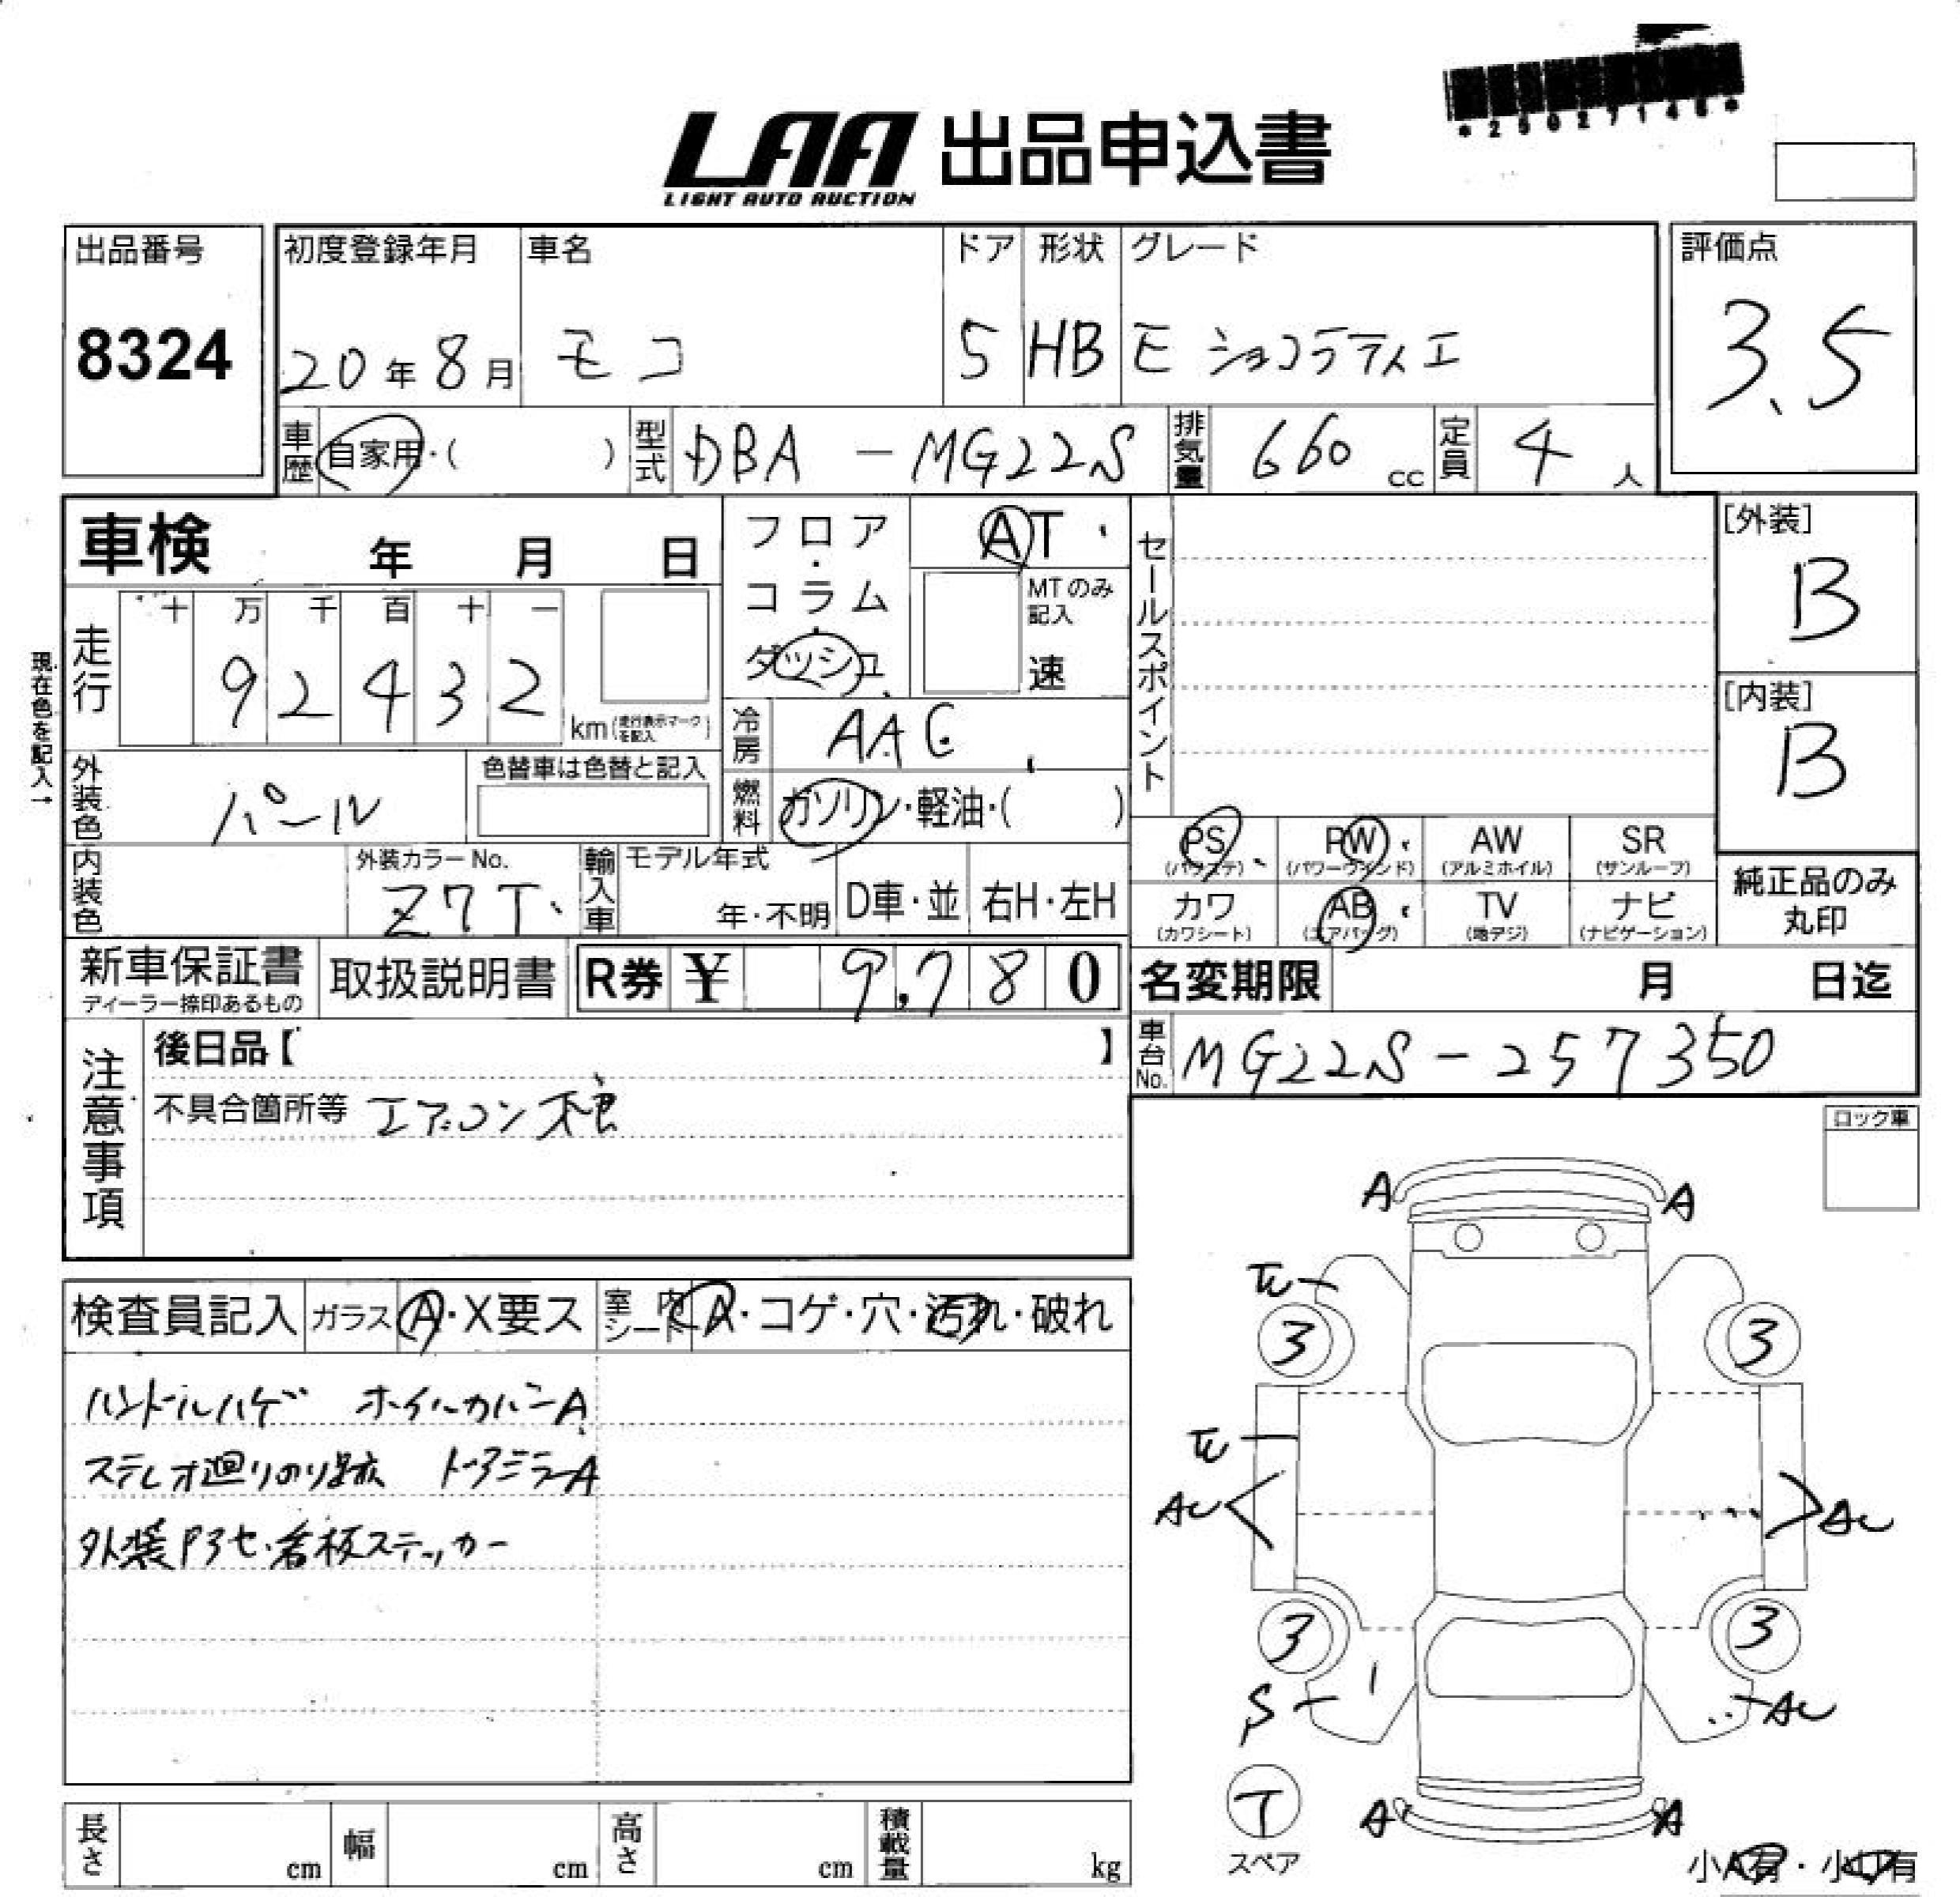 *25027148*
LAA 出品申込書
LIGHT AUTO AUCTION
出品番号 初度登録年月 車名 ドア 形状 グレード 評価点
8324 20年8月 モコ 5 HB E ショコラティエ 3.5
車歴 自家用・( ) 型式 DBA-MG22S 排気量 660 cc 定員 4 人
車検 年 月 日
フロア・コラム・ダッシュ
AT・
MTのみ記入
速
セールスポイント
[外装]
B
現在色を記入→
走行 十 万 千 百 十 一
92432 km (走行表示マークを記入)
冷房 AAC
[内装]
B
外装色 パール 色替車は色替と記入
燃料 ガソリン・軽油・( )
内装色 外装カラーNo. Z7T 輸入車 モデル年式 年・不明 D車・並 右H・左H
PS (パワステ) PW (パワーウインド) AW (アルミホイル) SR (サンルーフ)
カワ (カワシート) AB (エアバッグ) TV (地デジ) ナビ (ナビゲーション)
純正品のみ丸印
新車保証書 ディーラー捺印あるもの 取扱説明書 R券 ¥ 9,780
名変期限 月 日迄
車台No. MG22S-257350
注意事項
後日品【 】
不具合箇所等 エアコン
ロック車
検査員記入 ガラス A・X要ス 室内シート A・コゲ・穴・汚れ・破れ
ハンドルハゲ ホイルカバーA
ステレオ廻りのり跡 ドアミラーA
外装 看板ステッカー
A A
3 3
AU AU
3 3
S AU
T
スペア
A A
小A有・小U有
長さ cm 幅 cm 高さ cm 積載量 kg